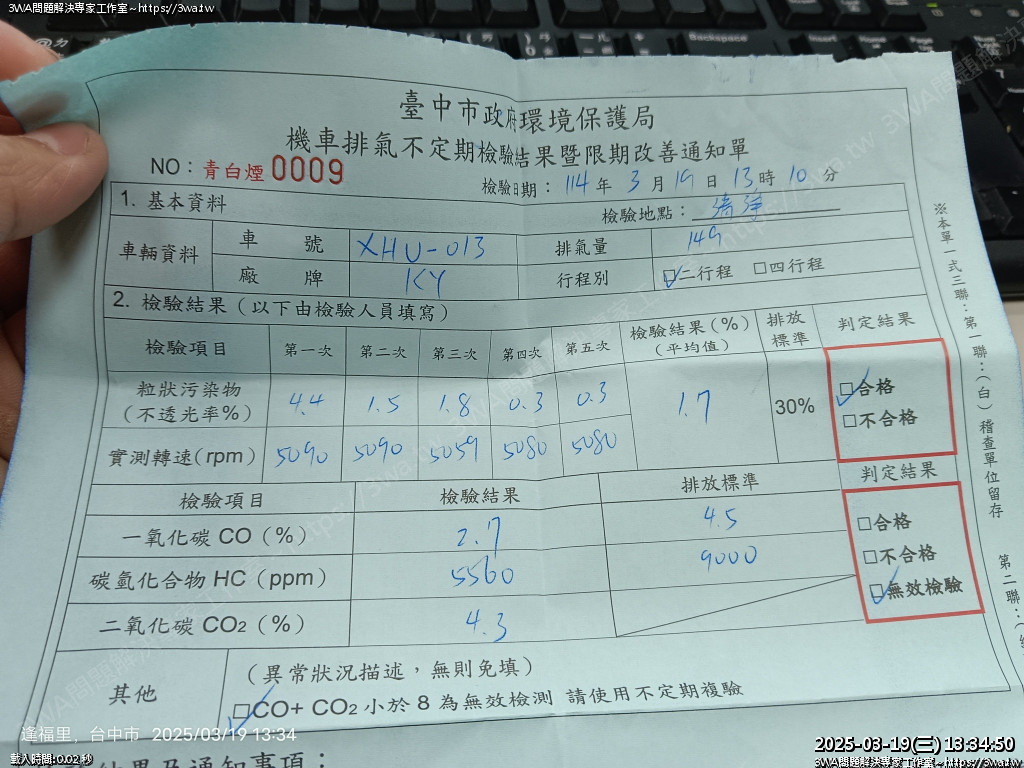 3WA問題解決專家工作室~https://3wa.tw 3WA問題解決專家工作室~https://3wa.tw
Backspace
臺中市政府環境保護局
機車排氣不定期檢驗結果暨限期改善通知單
NO：青白煙0009
檢驗日期：114年3月19日13時10分
1. 基本資料 檢驗地點：
車輛資料 車號 XHU-013 排氣量 149
廠牌 KY 行程別 ☑二行程 □四行程
2. 檢驗結果（以下由檢驗人員填寫）
檢驗項目 第一次 第二次 第三次 第四次 第五次 檢驗結果(%)（平均值） 排放標準 判定結果
粒狀污染物（不透光率%） 4.4 1.5 1.8 0.3 0.3 1.7 30% ☑合格
□不合格
實測轉速(rpm) 5090 5090 5059 5080 5080
檢驗項目 檢驗結果 排放標準 判定結果
一氧化碳 CO（%） 2.7 4.5 □合格
碳氫化合物 HC（ppm） 5560 9000 □不合格
二氧化碳 CO2（%） 4.3 ☑無效檢驗
其他 （異常狀況描述，無則免填）
☑CO+ CO2 小於 8 為無效檢測 請使用不定期複驗
※本單一式三聯：第一聯：（白）稽查單位留存
第二聯：（
結果及通知事項：
逢福里, 台中市 2025/03/19 13:34
載入時間: 0.02 秒
2025-03-19(三) 13:34:50
3WA問題解決專家工作室~https://3wa.tw